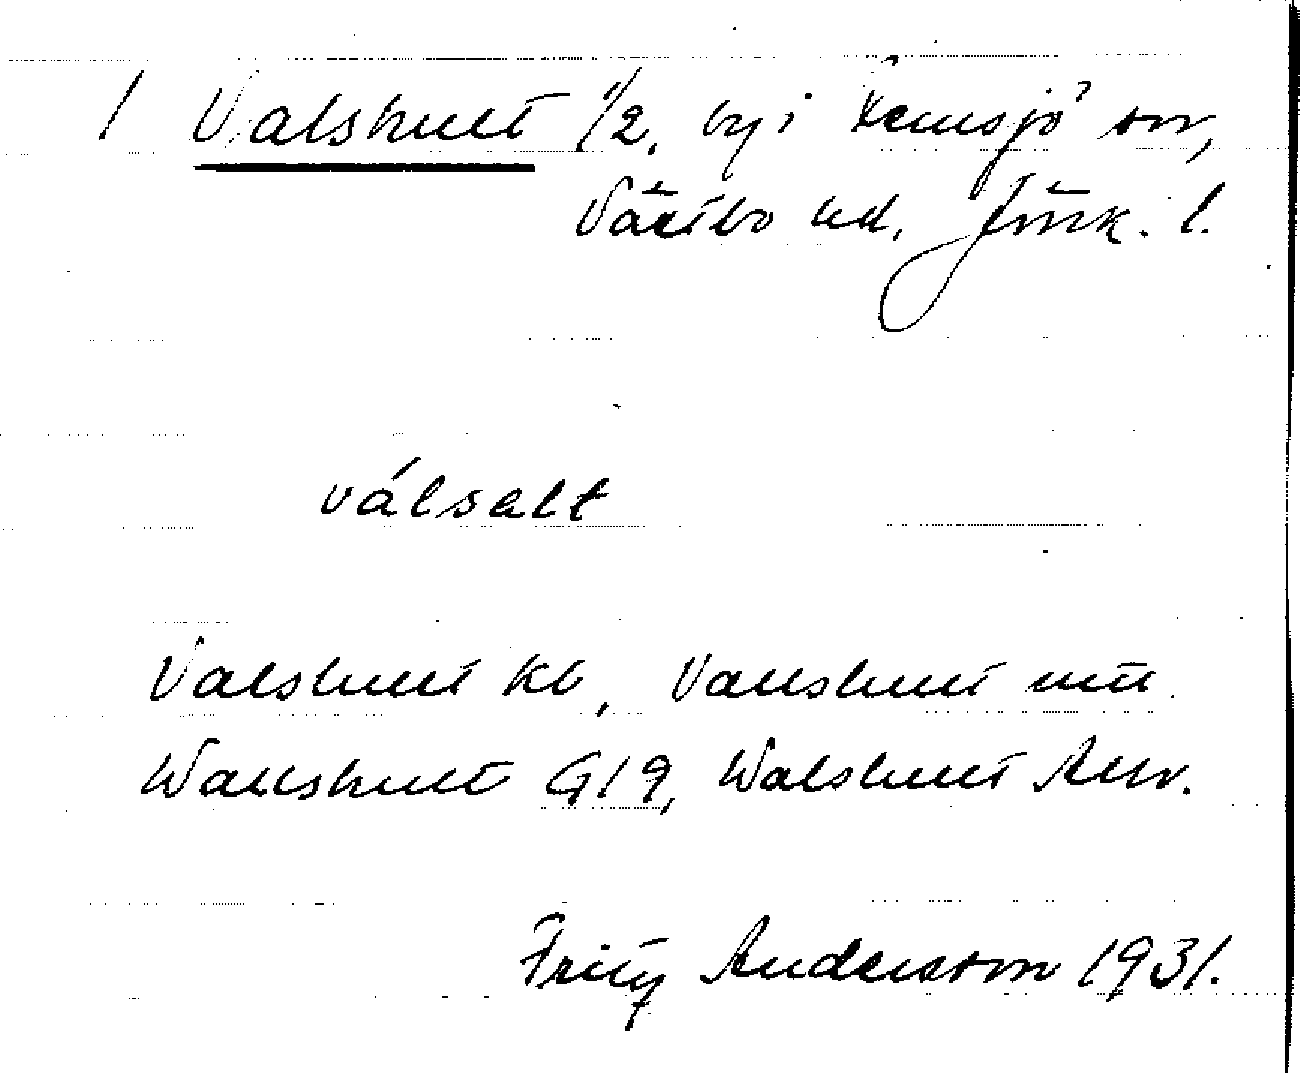 1 Valshult 1/2, by i Kemsjö' sn,
Västbo hd, Jönk. l.
válsalt
Valshult kb, Vallshult mtl.
Wallshult G19, Walshult Allv.
Fritz Andersson 1931.